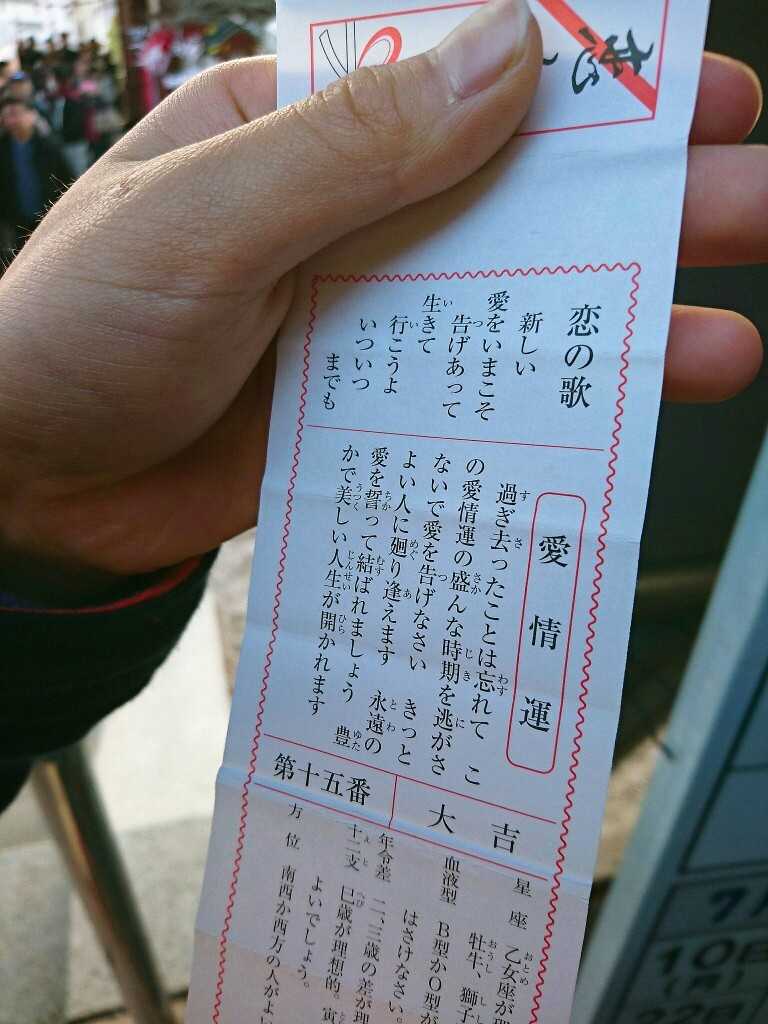 恋の歌
新しい
愛をいまこそ
告げあって
生きて
行こうよ
いついつ
までも
愛情運
過ぎ去ったことは忘れて　こ
の愛情運の盛んな時期を逃がさ
ないで愛を告げなさい　きっと
よい人に廻り逢えます　永遠の
愛を誓って結ばれましょう　豊
かで美しい人生が開かれます
第十五番
大吉
星座　乙女座が理
牡牛、獅子
血液型　B型かO型が
はさけなさい。
年令差　二、三歳の差が理
十二支　巳歳が理想的。寅
よいでしょう。
方位　南西か西方の人がよい
10日
(月)
22日